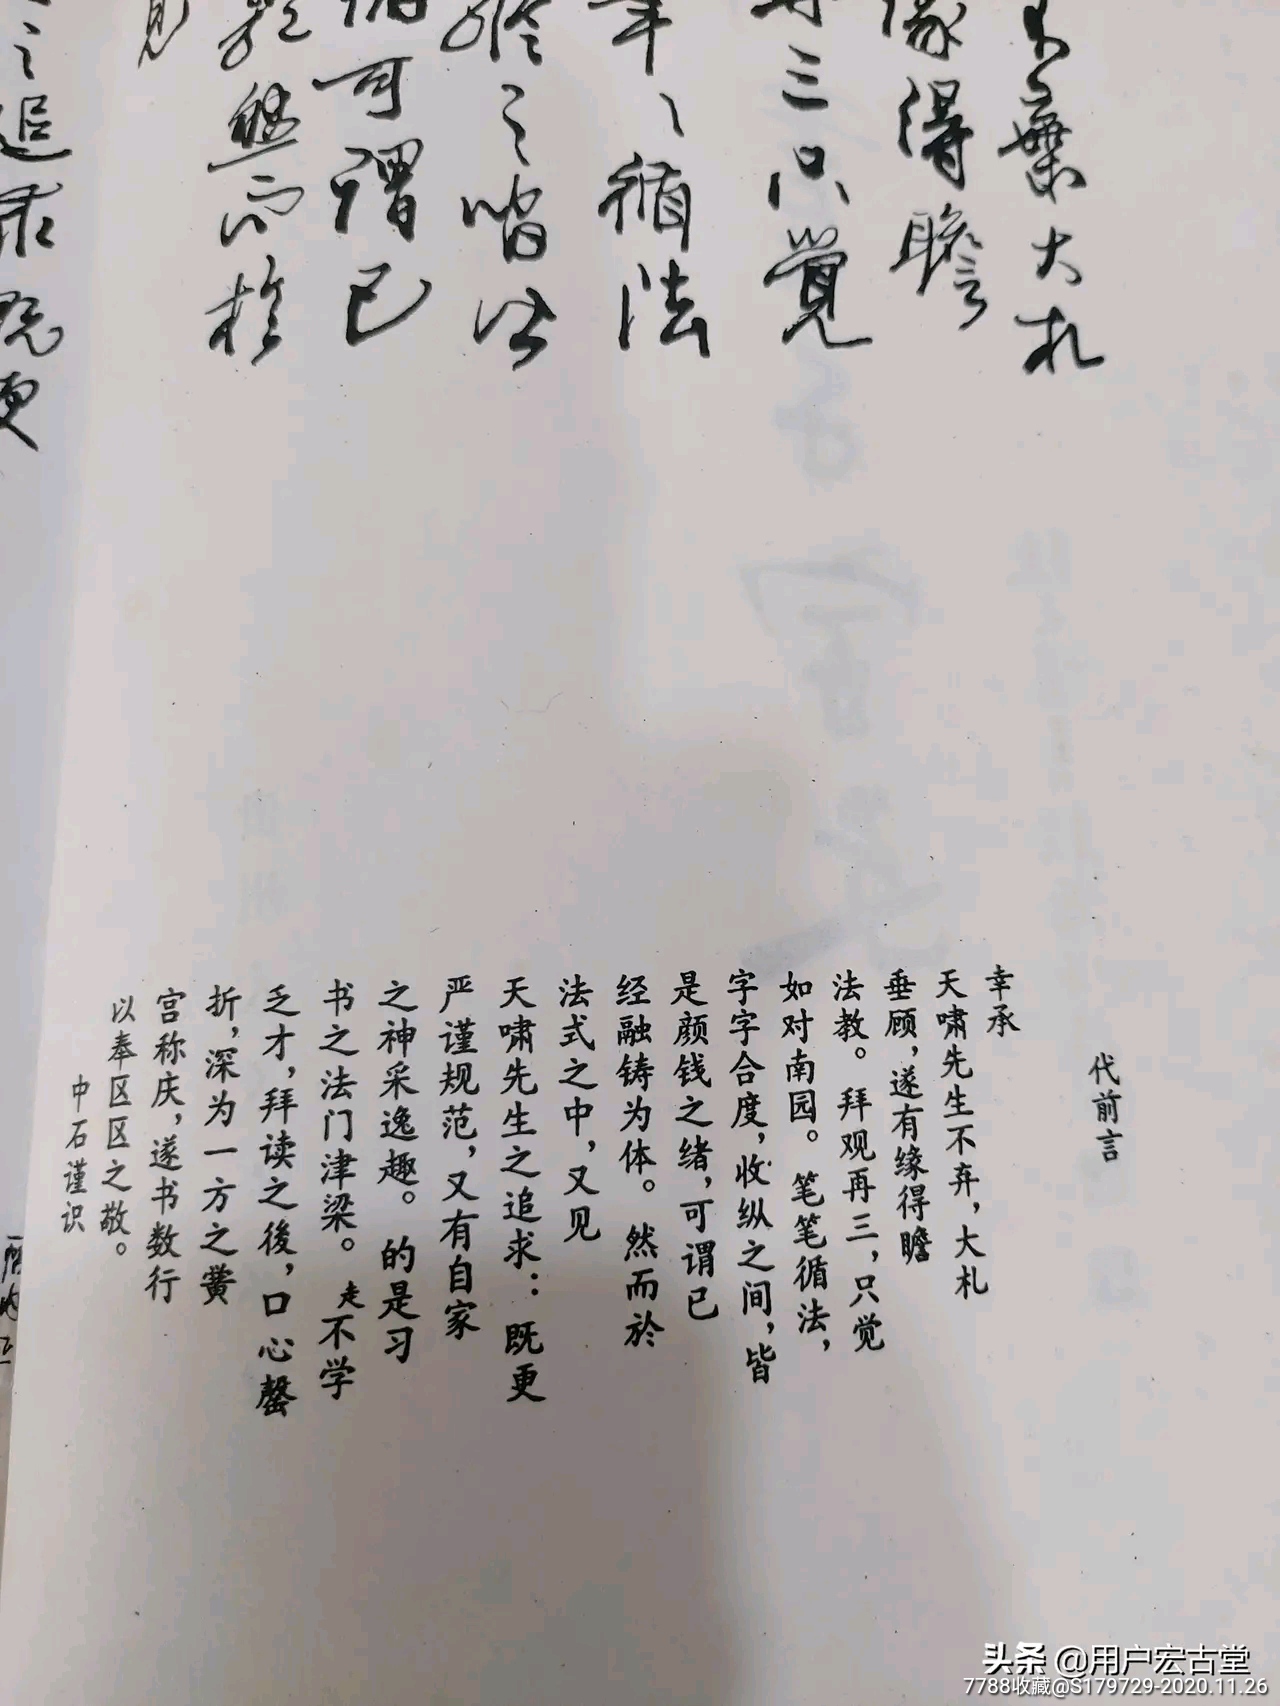 不棄大札
缘得瞻
三只覺
筆〻循法
之皆
可謂已
然而於
見
之追求既更
代前言
幸承
天啸先生不弃，大札
垂顾，遂有缘得瞻
法教。拜观再三，只觉
如对南园。笔笔循法，
字字合度，收纵之间，皆
是颜钱之绪，可谓已
经融铸为体。然而於
法式之中，又见
天啸先生之追求：既更
严谨规范，又有自家
之神采逸趣。的是习
书之法门津梁。走不学
乏才，拜读之後，口心罄
折，深为一方之黉
宫称庆，遂书数行
以奉区区之敬。
中石谨识
头条 @用户宏古堂
7788收藏@S179729-2020.11.26